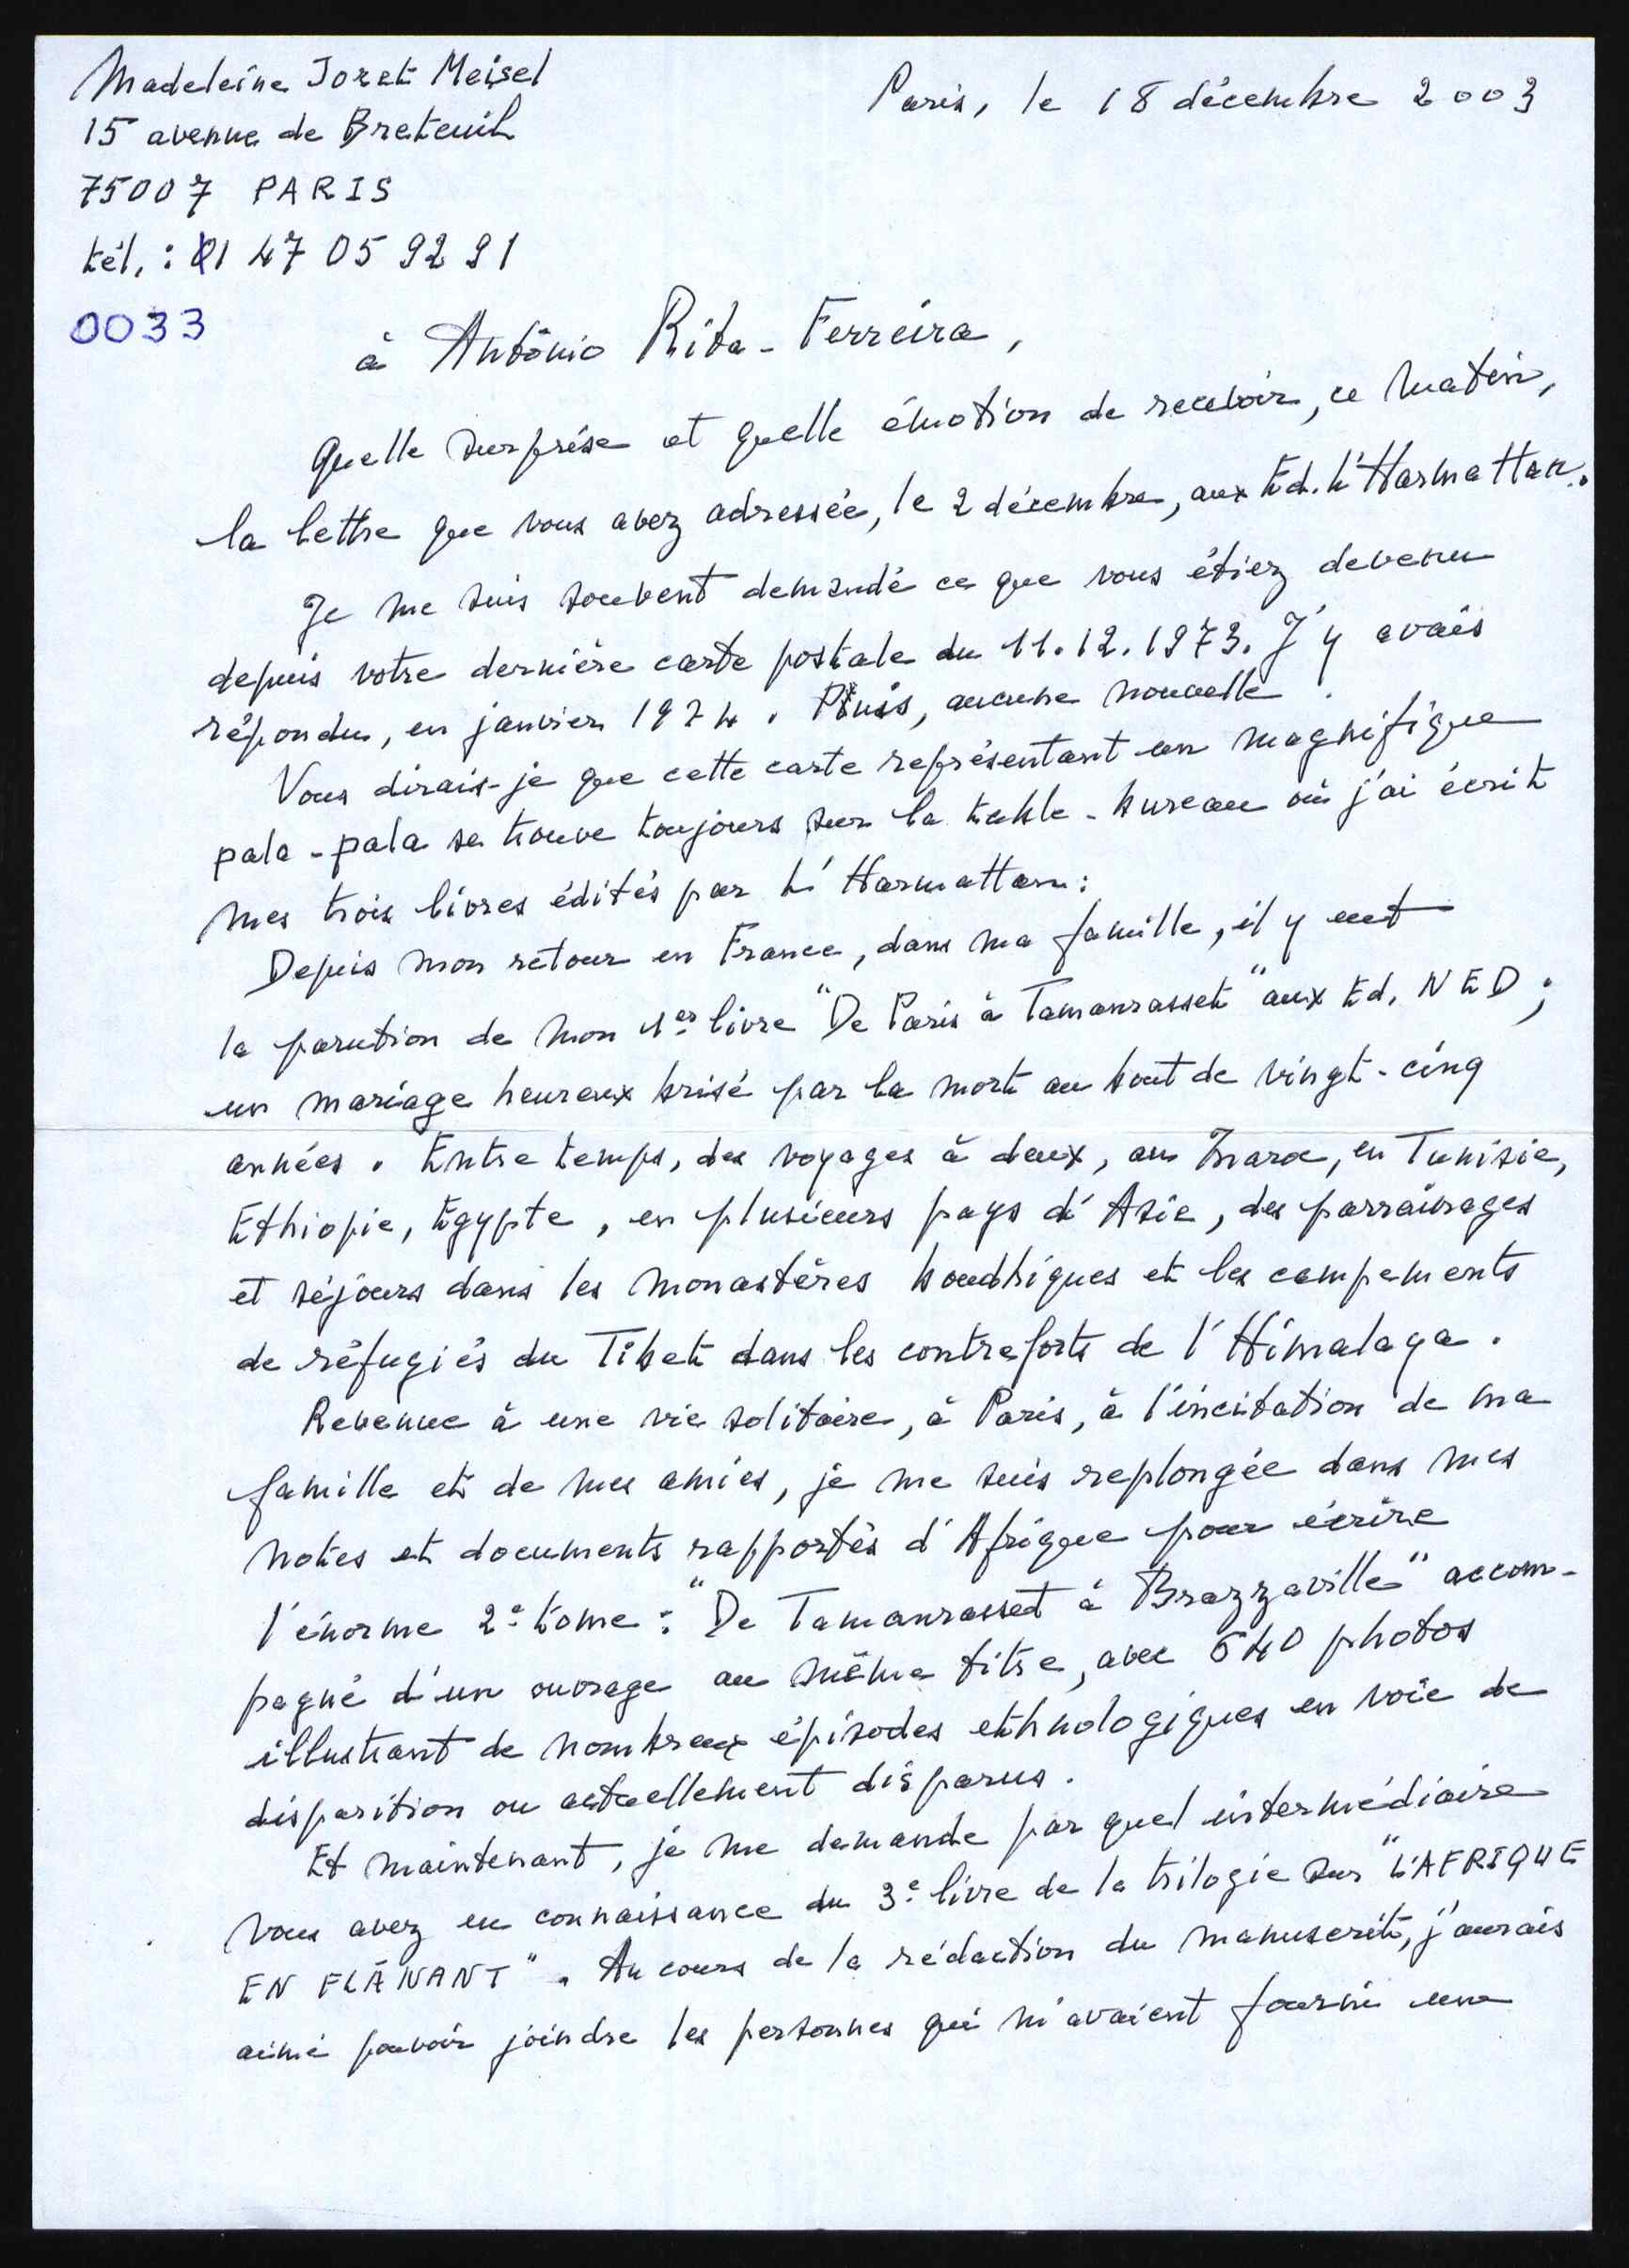 Madeleine Joret Meisel
Paris, le 18 décembre 2003
15 avenue de Breteuil
75007 PARIS
tél. : 01 47 05 92 91
0033
à António Rita-Ferreira,
Quelle surprise et quelle émotion de recevoir, ce matin,
la lettre que vous avez adressée, le 2 décembre, aux Ed. L'Harmattan.
Je me suis souvent demandé ce que vous étiez devenu
depuis votre dernière carte postale du 11.12.1973. J'y avais
répondu, en janvier 1974. Puis, aucune nouvelle.
Vous dirais-je que cette carte représentant un magnifique
pala-pala se trouve toujours sur la table-bureau où j'ai écrit
mes trois livres édités par L'Harmattan :
Depuis mon retour en France, dans ma famille, il y eut
la parution de mon 1er livre "De Paris à Tamanrasset" aux Ed. NED ;
un mariage heureux brisé par la mort au bout de vingt-cinq
années. Entre temps, des voyages à deux, au Maroc, en Tunisie,
Ethiopie, Egypte, en plusieurs pays d'Asie, des parrainages
et séjours dans les monastères bouddhiques et les campements
de réfugiés du Tibet dans les contreforts de l'Himalaya.
Revenue à une vie solitaire, à Paris, à l'incitation de ma
famille et de mes amies, je me suis replongée dans mes
notes et documents rapportés d'Afrique pour écrire
l'énorme 2e tome : "De Tamanrasset à Brazzaville" accom-
pagné d'un ouvrage au même titre, avec 640 photos
illustrant de nombreux épisodes ethnologiques en voie de
disparition ou actuellement disparus.
Et maintenant, je me demande par quel intermédiaire
vous avez eu connaissance du 3e livre de la trilogie sur "L'AFRIQUE
EN FLÂNANT". Au cours de la rédaction du manuscrit, j'aurais
aimé pouvoir joindre les personnes qui m'avaient fourni une